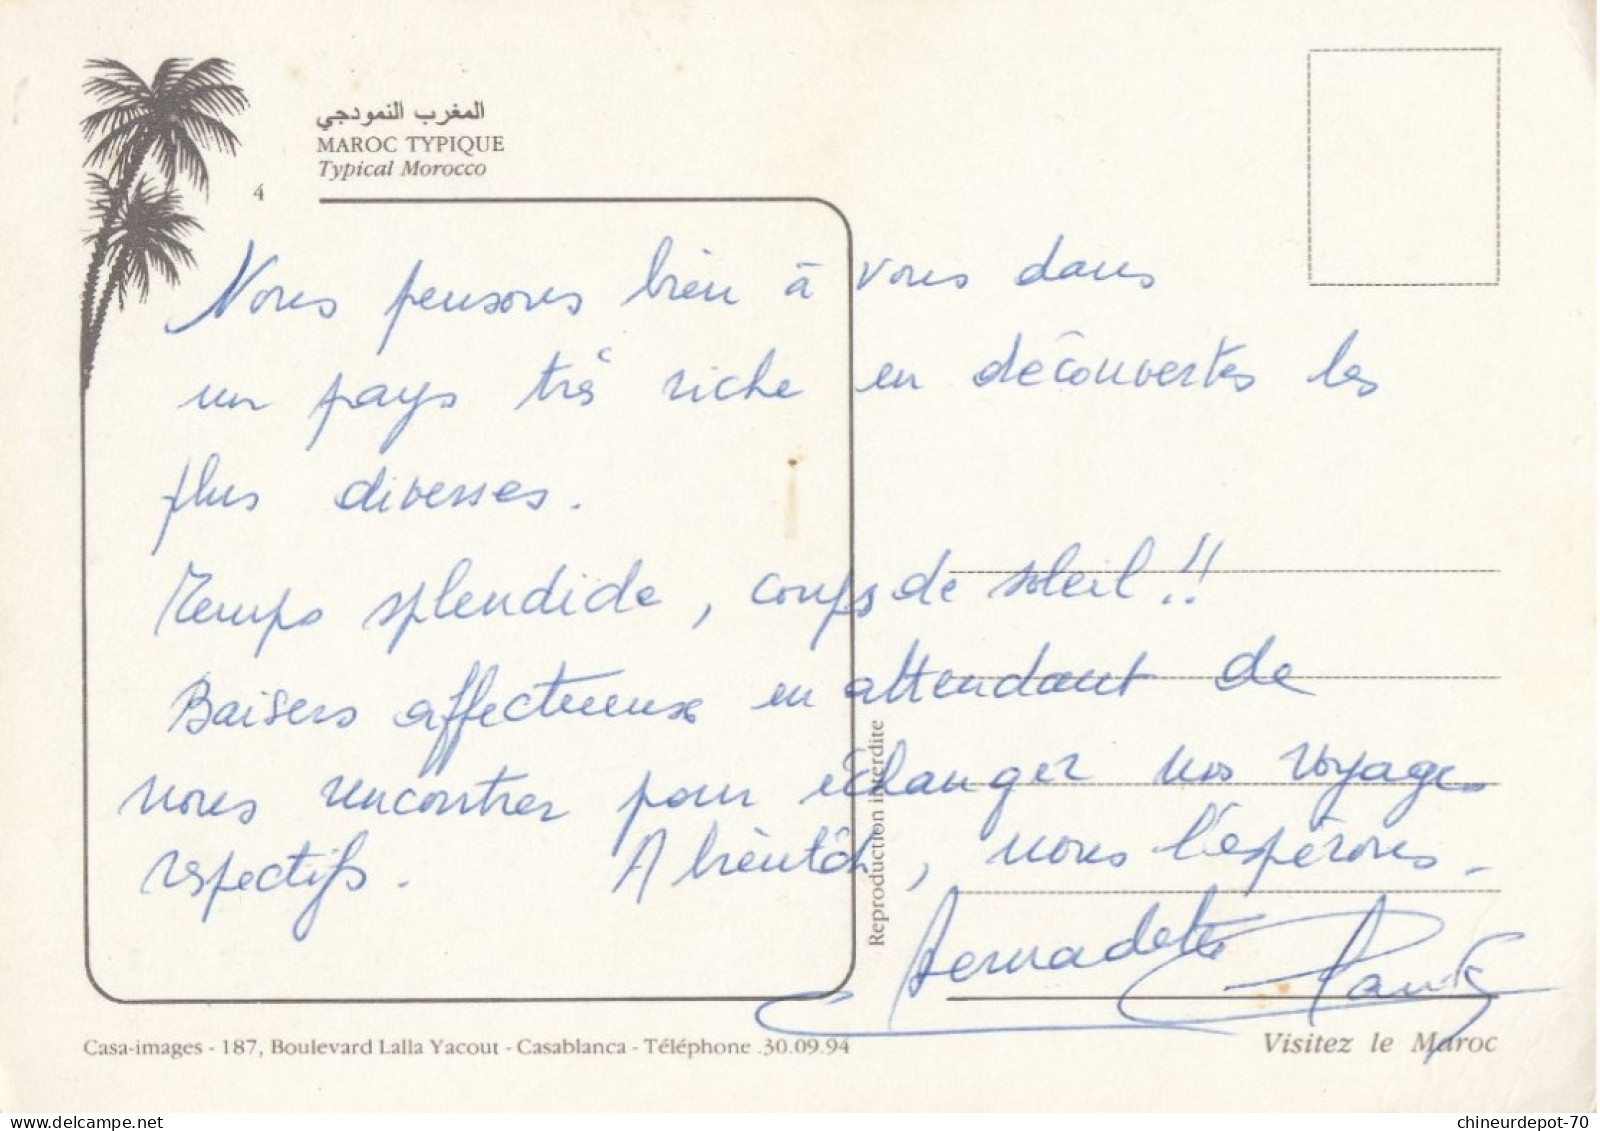 المغرب النمودجي
MAROC TYPIQUE
Typical Morocco
4
Nous pensons bien à vous dans
un pays très riche en découvertes les
plus diverses.
Temps splendide, coups de soleil !!
Baisers affectueux en attendant de
nous rencontrer pour échanger nos voyages
respectifs. A bientôt, nous l'espérons.
Bernadette
Reproduction interdite
Casa-images - 187, Boulevard Lalla Yacout - Casablanca - Téléphone .30.09.94
Visitez le Maroc
chineurdepot-70